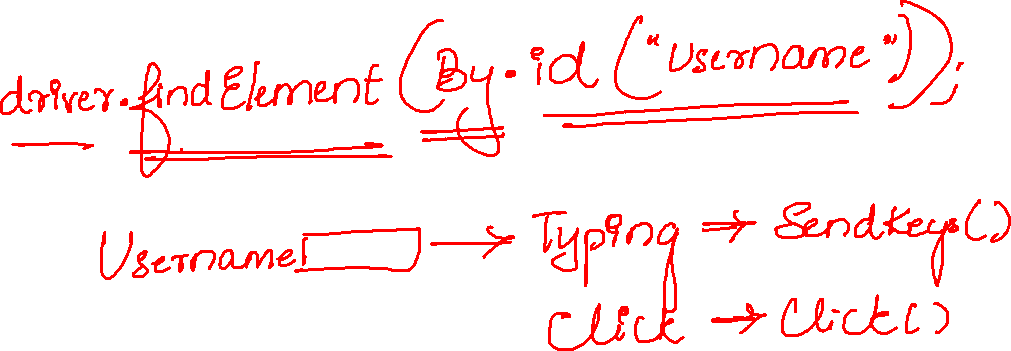 driver.findElement (By.id ("Username"));
Username → Typing ⇒ SendKeys()
Click → Click()